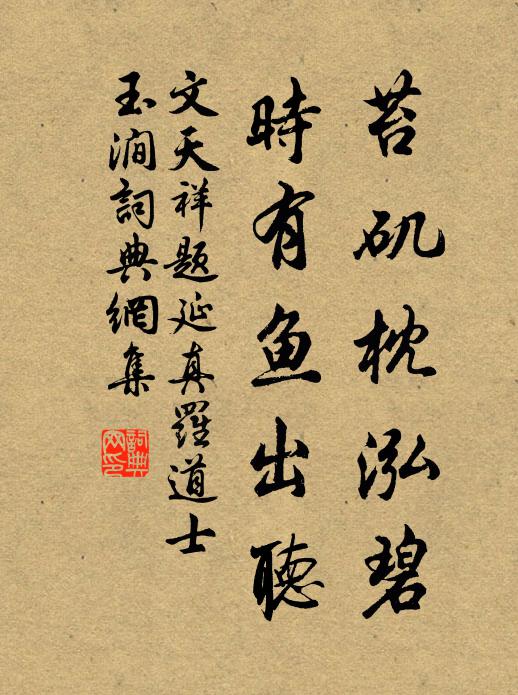 苔矶枕泓碧
時有鱼出聽
文天祥题延真羅道士
玉澗詞典網集
詞典
网印